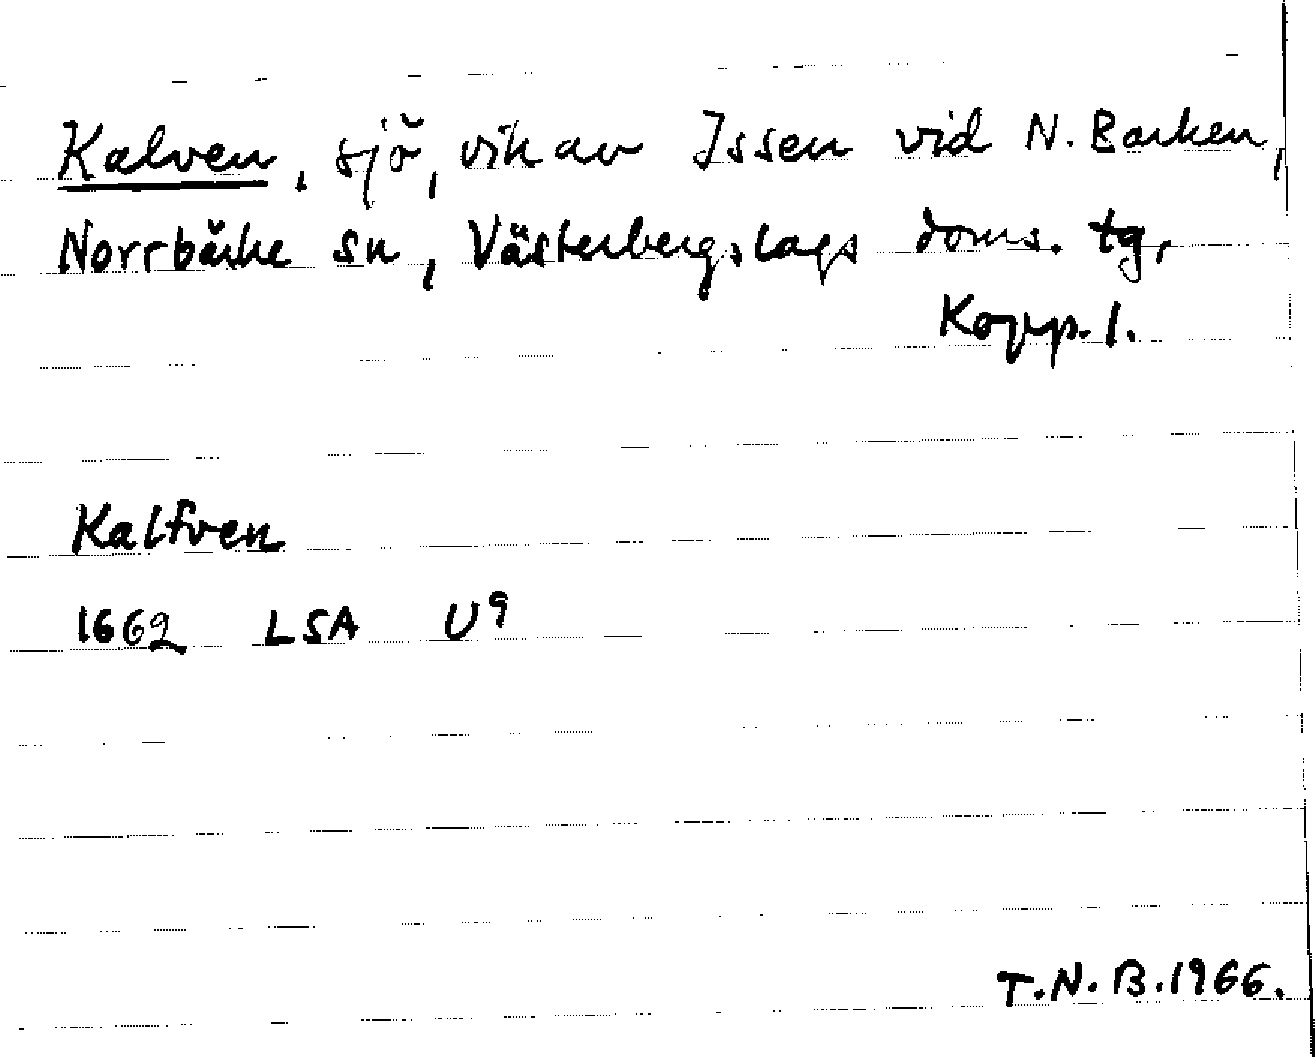 Kalven, sjö, vik av Issen vid N. Barken,
Norrbärke sn, Västerbergslags doms. tg,
Kopp. l.
Kalfven
1662 LSA U9
T.N.B. 1966.